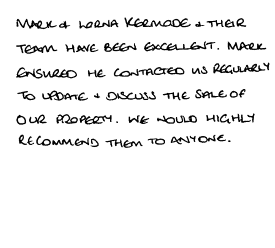 MARK & LORNA KERMODE & THEIR
TEAM HAVE BEEN EXCELLENT. MARK
ENSURED HE CONTACTED US REGULARLY
TO UPDATE & DISCUSS THE SALE OF
OUR PROPERTY. WE WOULD HIGHLY
RECOMMEND THEM TO ANYONE.